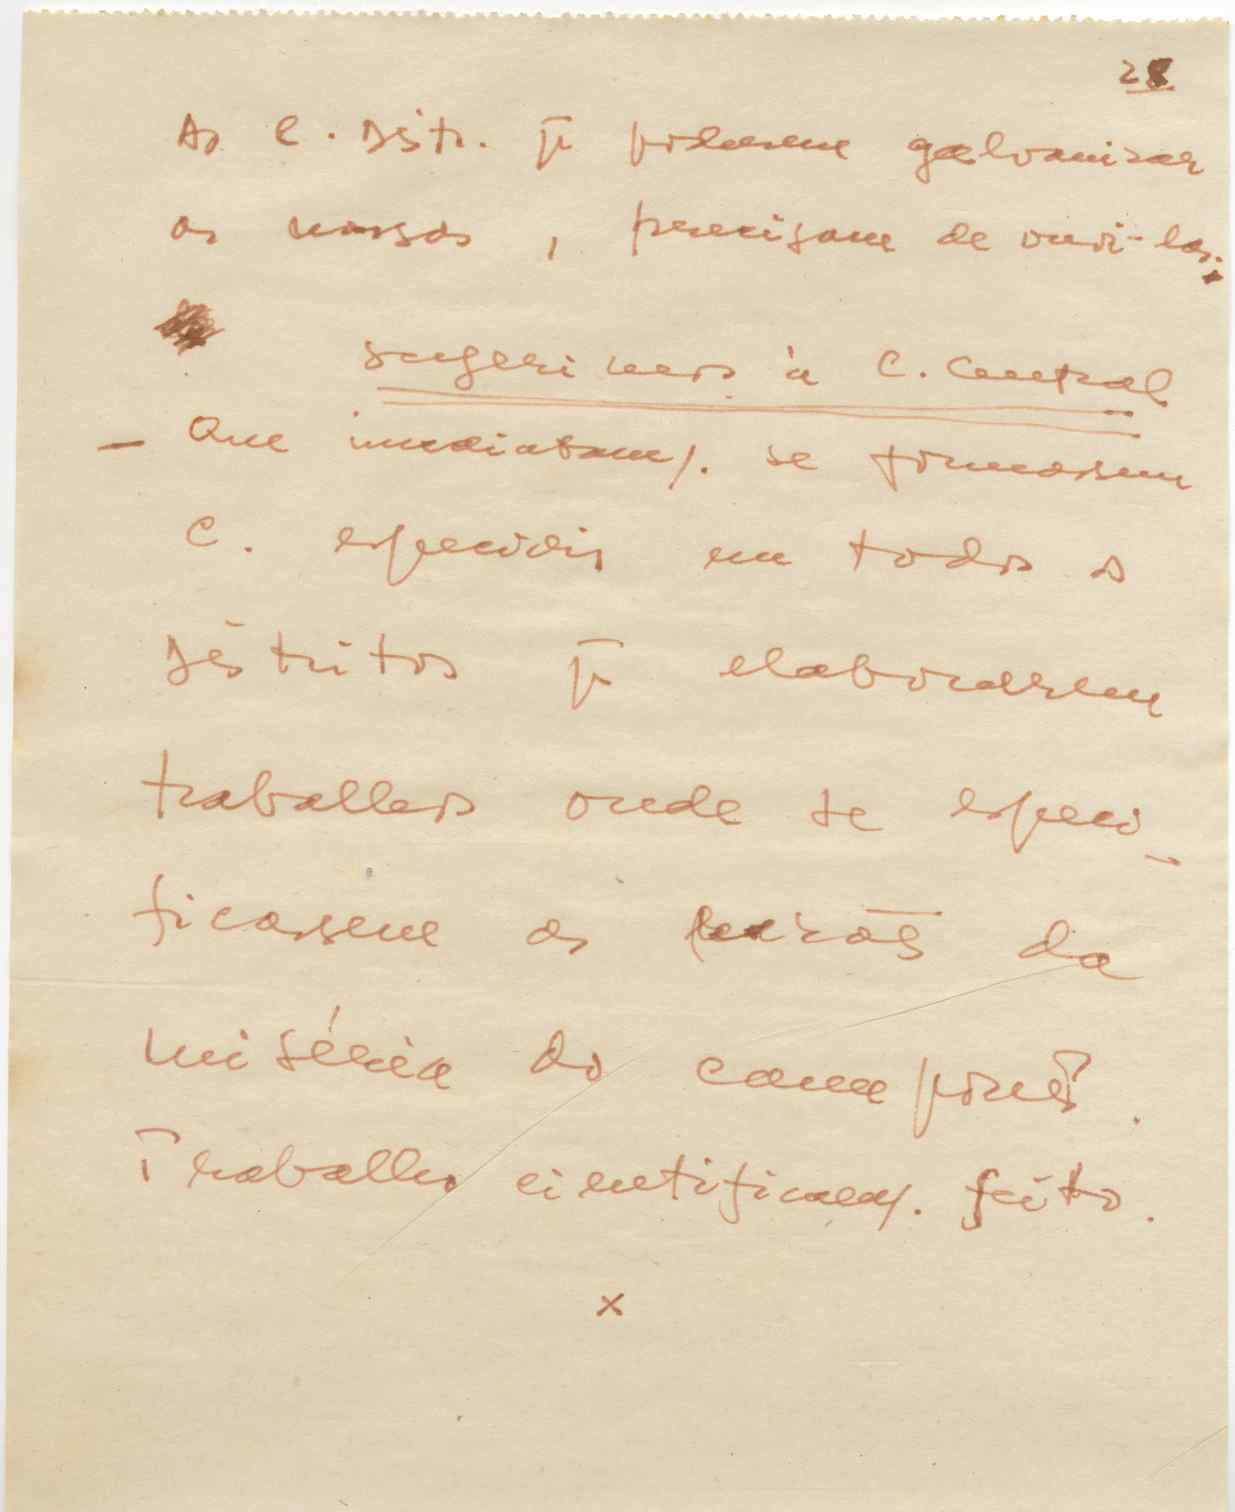 28
As C. Distr. p̄ poderem galvanizar
as massas, precisam de ouvi-las.
sugerimos à C. Central
— Que imediatam/. se formassem
C. especiais em todos os
Distritos p̄ elaborarem
trabalhos onde se especi-
ficassem as razões da
miséria do camponês.
Trabalho cientificam/. feito.
x